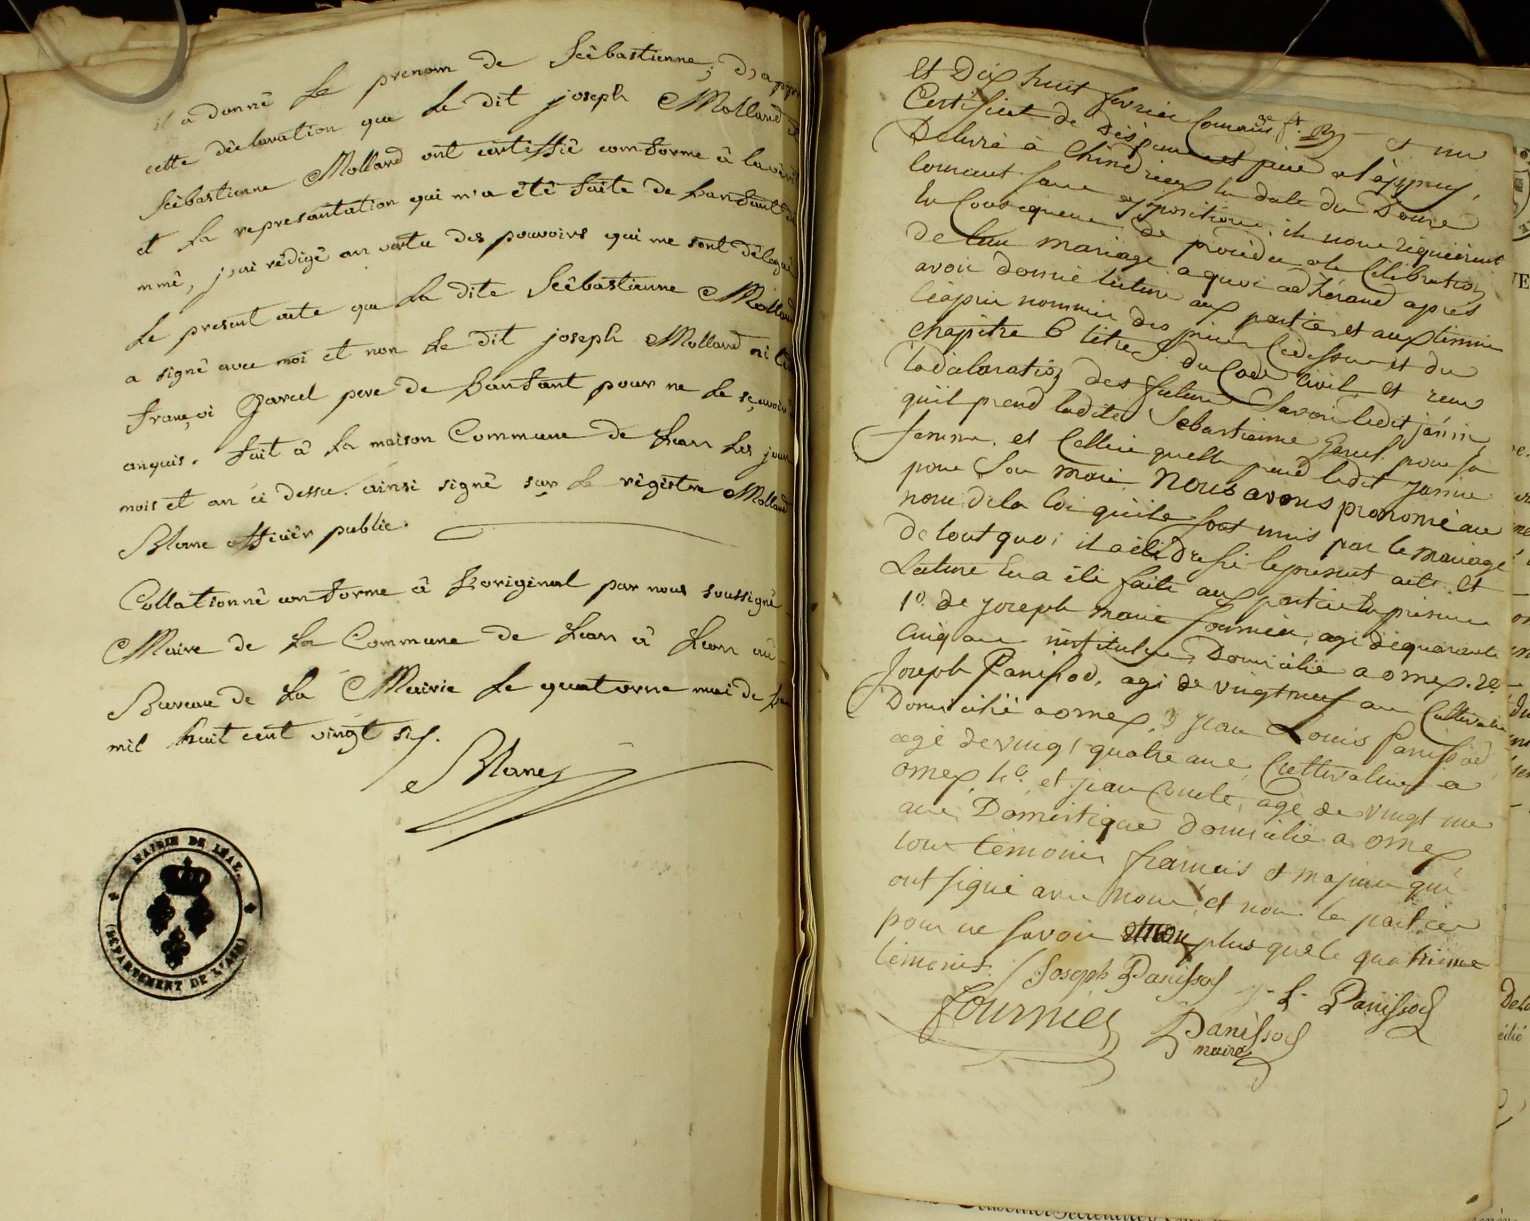 il a donné le prenom de Sêbastienne; D'apr
cette déclaration que le dit joseph Molland et
Sêbastienne Molland ont certiffié comforme â la vérit
et la represantation qui m'a été faite de L'anfant
mmé, j'ai rédigé an vertu des pouvoirs qui me sont délégu
Le present acte que la dite Sêbastienne Molland
a signé avec moi et non le dit joseph Molland ni le
françoi garcel pere de L'anfant pour ne le sçavoir
anquis. fait â La maison Commune de Lean Les jour
mois et an ci dessu. ainsi signé sur le régistre Molland
Blanc officier public.
Collationné comforme â L'original par nous soussigné
Maire de La Commune de Lean â Lean au
Bureau de La Mairie Le quatorze mai de
mil huit cent vingt six.
Blanc
MAIRIE DE LÉAZ.
(DÉPARTEMENT DE L'AIN)
et Dix huit fevrier Courant et un
Certificat de
Delivré à Chindrieux en date du Douze
Courant sans opposition, ils nous requierent
En Consequence de proceder a la Célébration
de leur mariage. a quoi adhérand apres
avoir donné lecture aux parties et aux temoins
ciaprès nommés des pieces cidessus et du
chapitre 6 titre 5 du Code Civil, et recu
la déclaration des futurs Savoir ledit janin
qu'il prend ladite Sebastienne garcel pour sa
femme. et Celleci quelle prend ledit janin
pour Son mari. Nous avons prononcé au
nom de la loi quils sont unis par le mariage
De tout quoi il a été Dressé le present acte. Et
Lecture En a été faite aux parties En présence
1o. de joseph marie fournier, agé de quarante
Cinq ans instituteur Domicilié a ornex. 2o.
Joseph Panissod, agé de vingt neuf ans Cultivateur
Domicilié a ornex, 3 Jean Louis Panissod
agé de vingt quatre ans, Cultivateur a
ornex, 4o. et jean Comte, agé de vingt un
ans, Domestique domicilié a ornex
tous témoins francais et majeurs qui
ont signé avec nous, et non les parties
pour ne savoir non plus que le quatrieme
témoins. Joseph Panissod J. L. Panissod
fournier Panissod
maire